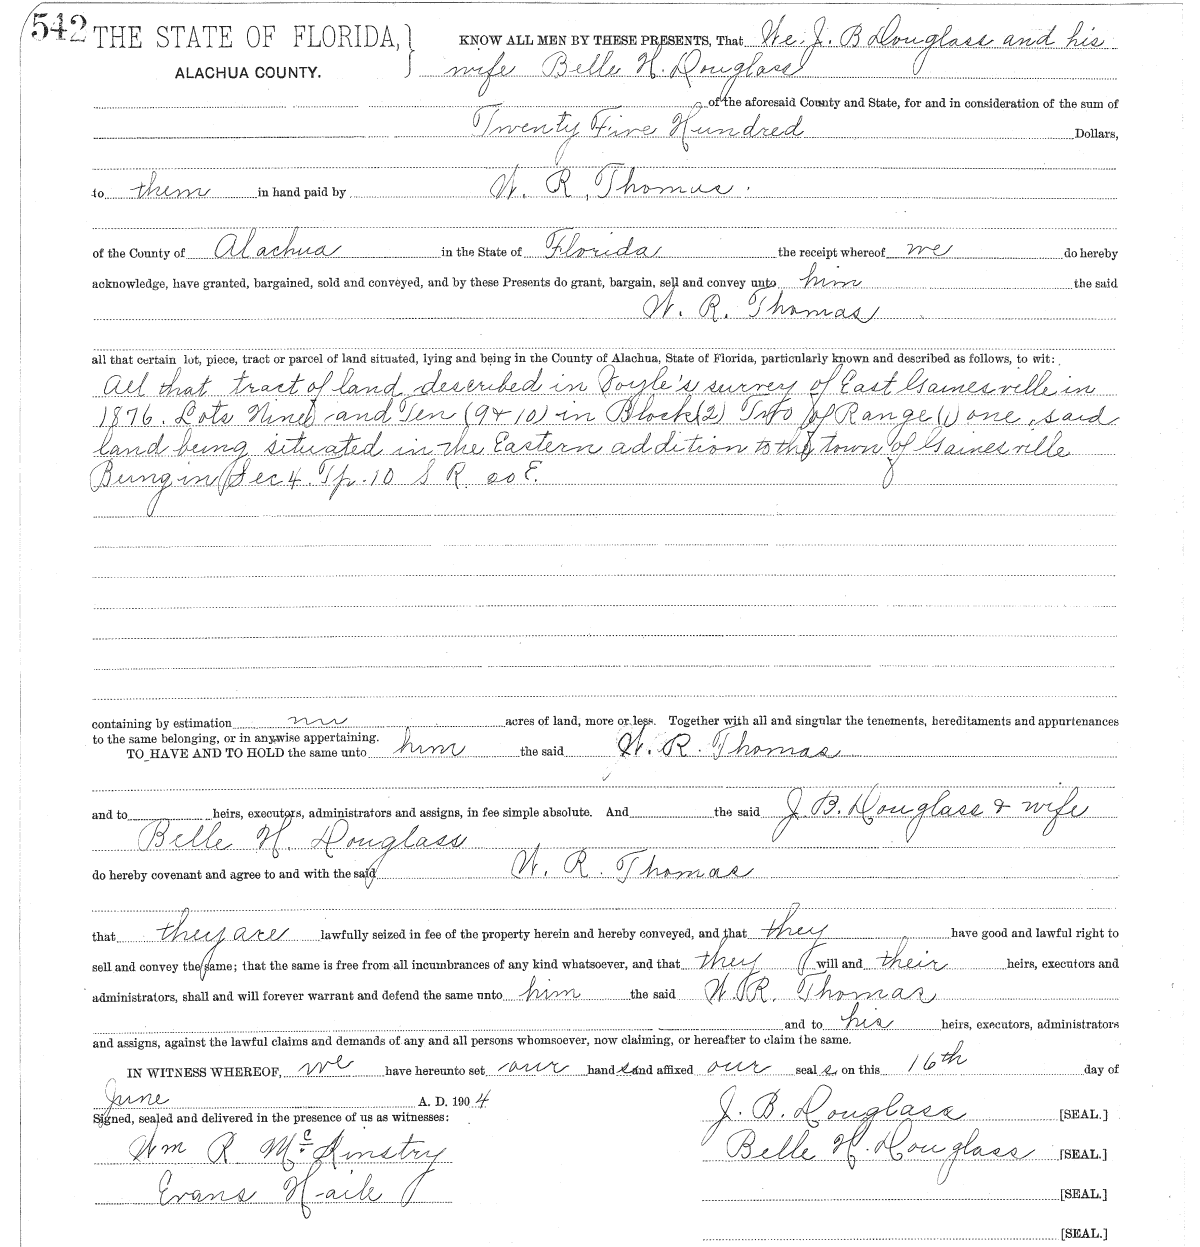 542 THE STATE OF FLORIDA, } KNOW ALL MEN BY THESE PRESENTS, That We. J. B Douglass and his
ALACHUA COUNTY. wife Belle H. Douglass
of the aforesaid County and State, for and in consideration of the sum of
Twenty Five Hundred Dollars,
to them in hand paid by W. R, Thomas.
of the County of Alachua in the State of Florida the receipt whereof we do hereby
acknowledge, have granted, bargained, sold and conveyed, and by these Presents do grant, bargain, sell and convey unto him the said
W. R. Thomas
all that certain lot, piece, tract or parcel of land situated, lying and being in the County of Alachua, State of Florida, particularly known and described as follows, to wit:
All that tract of land described in Doyle's survey of East Gainesville in
1876. Lots Nine and Ten (9 & 10) in Block (2) Two of Range (1) one, said
land being situated in the Eastern addition to the town of Gainesville
Being in Sec 4. Tp. 10 S R. 20 E.
containing by estimation acres of land, more or less. Together with all and singular the tenements, hereditaments and appurtenances
to the same belonging, or in anywise appertaining.
TO HAVE AND TO HOLD the same unto him the said W. R. Thomas
and to heirs, executors, administrators and assigns, in fee simple absolute. And the said J. B. Douglass & wife
Belle H. Douglass
do hereby covenant and agree to and with the said W. R. Thomas
that they are lawfully seized in fee of the property herein and hereby conveyed, and that they have good and lawful right to
sell and convey the same; that the same is free from all incumbrances of any kind whatsoever, and that they will and their heirs, executors and
administrators, shall and will forever warrant and defend the same unto him the said W. R. Thomas
and to his heirs, executors, administrators
and assigns, against the lawful claims and demands of any and all persons whomsoever, now claiming, or hereafter to claim the same.
IN WITNESS WHEREOF, we have hereunto set our hands and affixed our seals on this 16th day of
June A. D. 1904
Signed, sealed and delivered in the presence of us as witnesses:
J. B. Douglass [SEAL.]
Wm R McKinstry Belle H. Douglass [SEAL.]
Evans Haile [SEAL.]
[SEAL.]